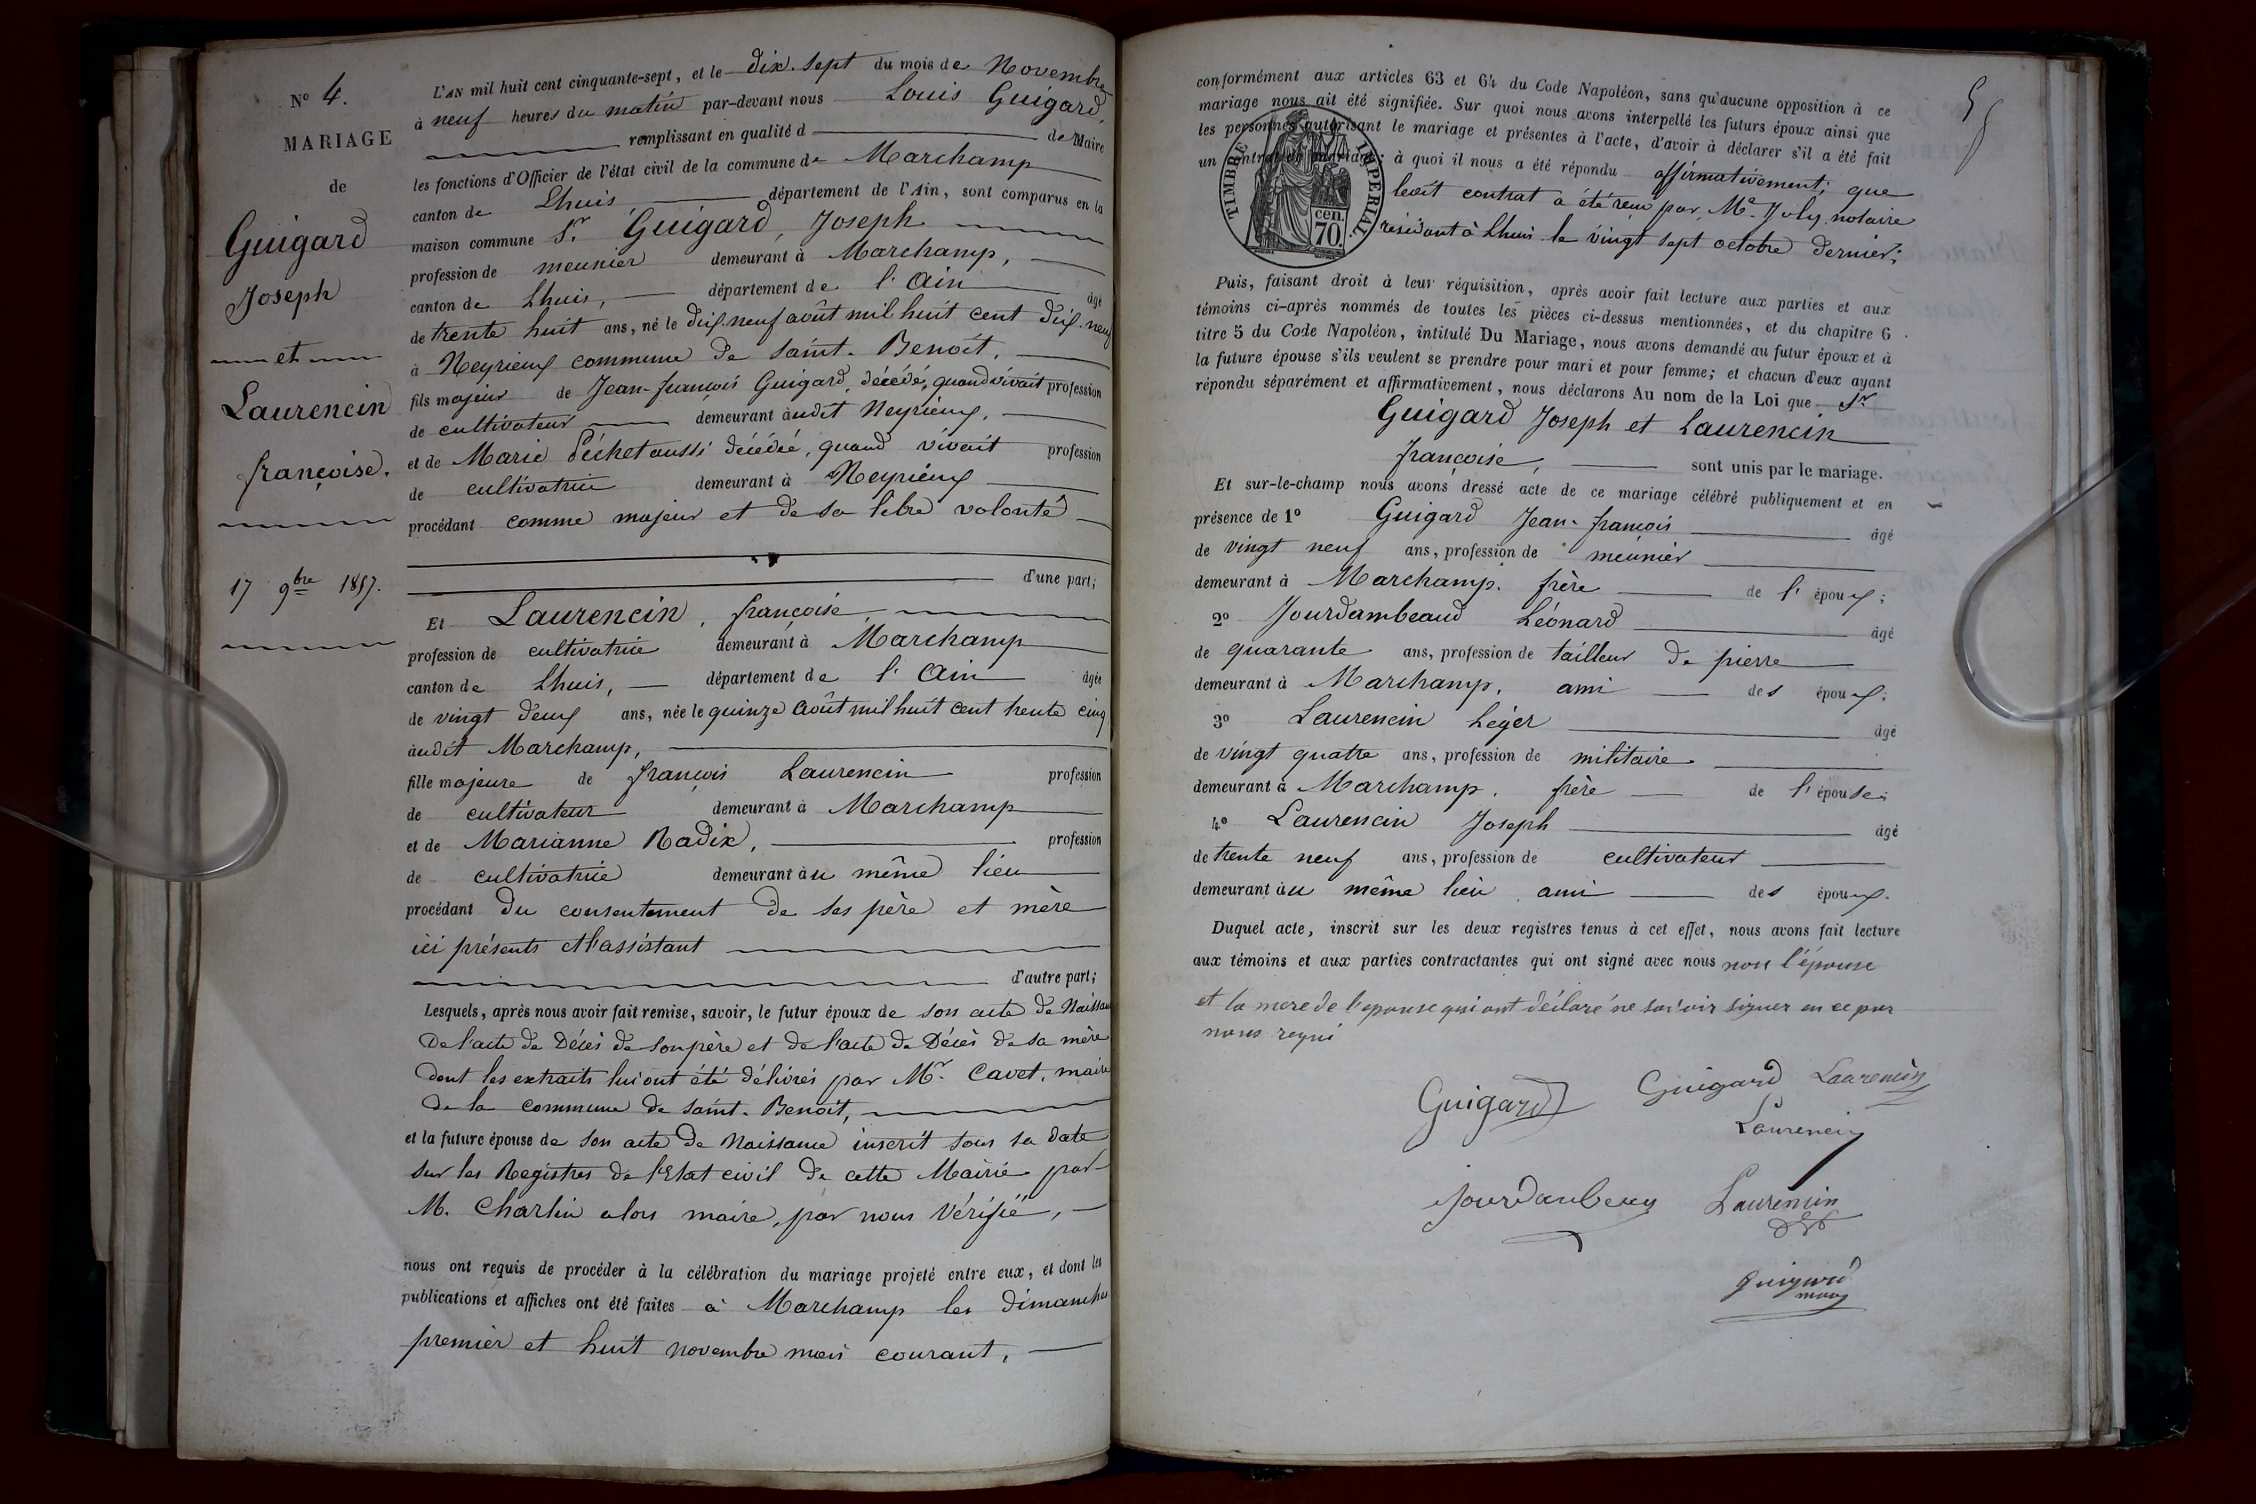 N° 4.
MARIAGE
de
Guigard
Joseph
et
Laurencin
françoise.
17 9bre 1857.
L'AN mil huit cent cinquante-sept, et le dix-sept du mois de Novembre
à neuf heures du matin par-devant nous Louis Guigard,
remplissant en qualité d de Maire
les fonctions d'Officier de l'état civil de la commune de Marchamp
canton de Lhuis, département de l'Ain, sont comparus en la
maison commune Sr. Guigard, Joseph
profession de meunier demeurant à Marchamp,
canton de Lhuis, département de l'Ain âgé
de trente huit ans, né le dix neuf août mil huit cent dix-neuf
à Neyrieux commune de Saint-Benoît,
fils majeur de Jean-françois Guigard, décédé, quand vivait profession
de cultivateur demeurant àudit Neyrieux,
et de Marie Péchet aussi décédée, quand vivait profession
de cultivatrice demeurant à Neyrieux
procédant comme majeur et de sa libre volonté
d'une part;
Et Laurencin, françoise,
profession de cultivatrice demeurant à Marchamp
canton de Lhuis, département de l'Ain âgée
de vingt deux ans, née le quinze Août mil huit cent trente cinq
àudit Marchamp,
fille majeure de françois Laurencin profession
de cultivateur demeurant à Marchamp
et de Marianne Radix, profession
de cultivatrice demeurant àu même lieu
procédant du consentement de ses père et mère
ici présents et l'assistant
d'autre part;
Lesquels, après nous avoir fait remise, savoir, le futur époux de son acte de Naissance
de l'acte de Décès de son père et de l'acte de Décès de sa mère
dont les extraits lui ont été délivrés par Mr. Cavet, maire
de la commune de Saint-Benoît,
et la future épouse de son acte de Naissance inscrit sous sa date
sur les Registres de l'Etat civil de cette Mairie par
M. Charlin alors maire, par nous Vérifié,
nous ont requis de procéder à la célébration du mariage projeté entre eux, et dont les
publications et affiches ont été faites à Marchamp les dimanches
premier et huit novembre mois courant,
conformément aux articles 63 et 64 du Code Napoléon, sans qu'aucune opposition à ce
mariage nous ait été signifiée. Sur quoi nous avons interpellé les futurs époux ainsi que
les personnes autorisant le mariage et présentes à l'acte, d'avoir à déclarer s'il a été fait
un contrat de mariage; à quoi il nous a été répondu affirmativement; que
ledit contrat a été reçu par Me. Joly notaire
résidant à Lhuis le vingt sept octobre dernier;
TIMBRE IMPERIAL
cen.
70.
Puis, faisant droit à leur réquisition, après avoir fait lecture aux parties et aux
témoins ci-après nommés de toutes les pièces ci-dessus mentionnées, et du chapitre 6
titre 5 du Code Napoléon, intitulé Du Mariage, nous avons demandé au futur époux et à
la future épouse s'ils veulent se prendre pour mari et pour femme; et chacun d'eux ayant
répondu séparément et affirmativement, nous déclarons Au nom de la Loi que Sr
Guigard Joseph et Laurencin
françoise, sont unis par le mariage.
Et sur-le-champ nous avons dressé acte de ce mariage célébré publiquement et en
présence de 1° Guigard Jean-françois âgé
de vingt neuf ans, profession de meunier
demeurant à Marchamp. frère de l'époux;
2° Jourdambeaud Léonard âgé
de quarante ans, profession de tailleur de pierre
demeurant à Marchamp, ami des époux;
3° Laurencin Léger âgé
de vingt quatre ans, profession de militaire
demeurant à Marchamp, frère de l'épouse;
4° Laurencin Joseph âgé
de trente neuf ans, profession de cultivateur
demeurant àu même lieu ami des époux.
Duquel acte, inscrit sur les deux registres tenus à cet effet, nous avons fait lecture
aux témoins et aux parties contractantes qui ont signé avec nous non l'épouse
et la mere de l'epouse qui ont déclaré ne savoir signer en ce par
nous requi
Guigard Guigard Laurencin
Laurencin
Jourdanbeau Laurencin
Guigard